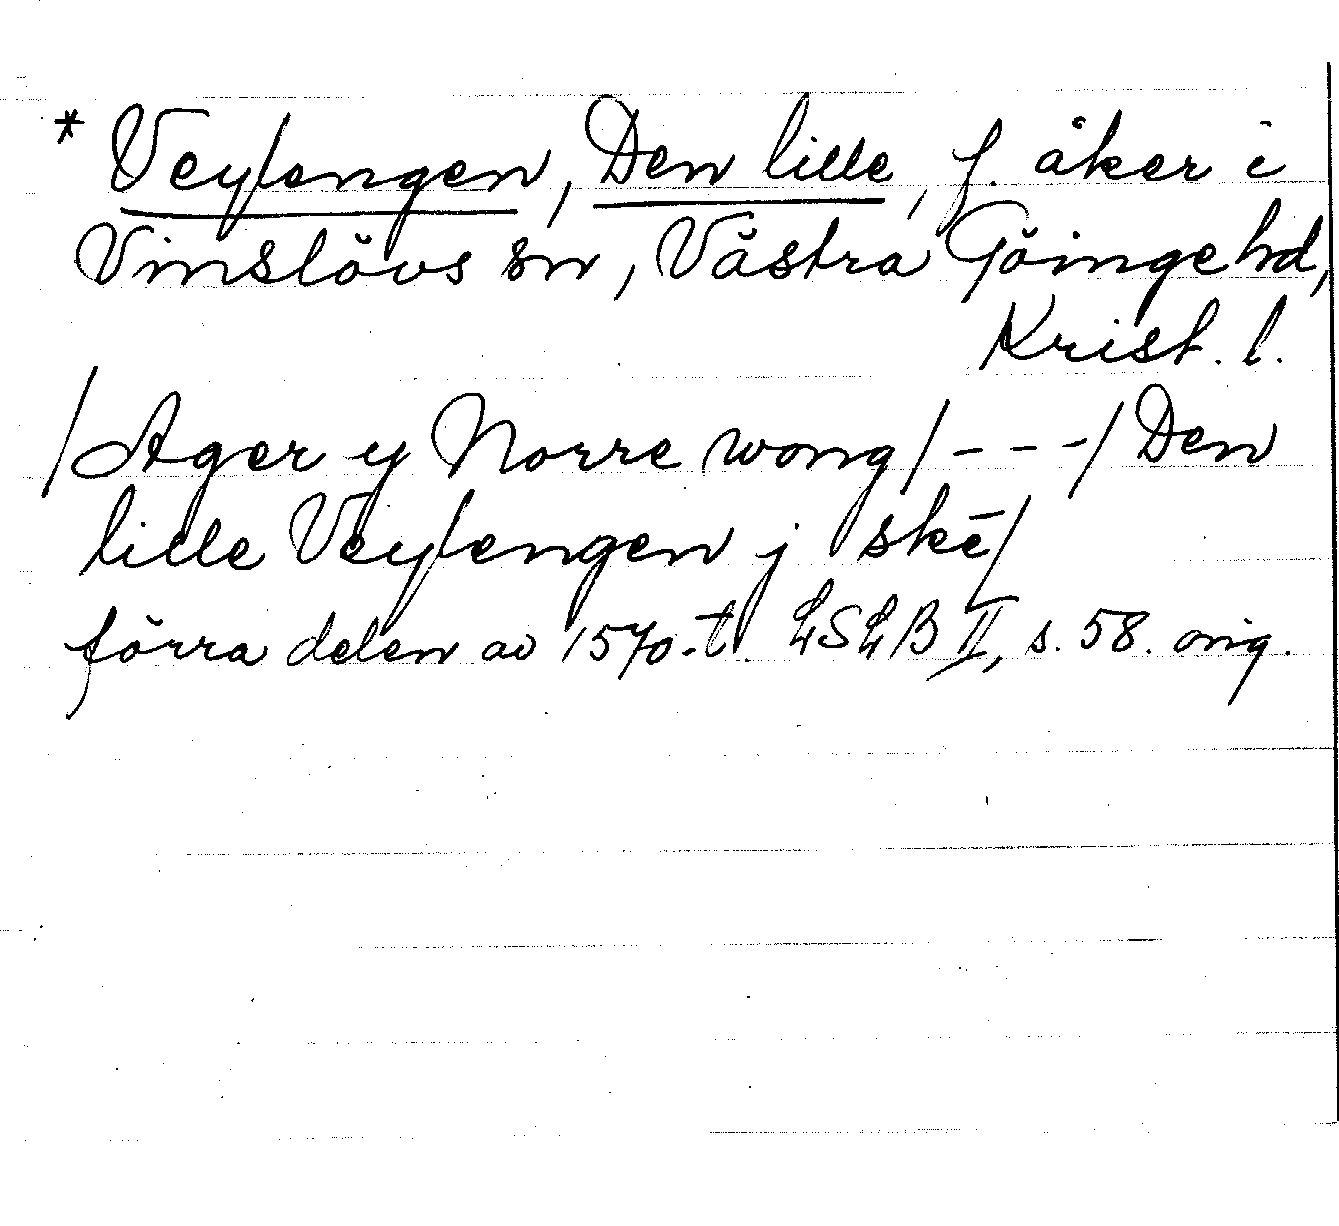 * Veylengen, Den lille, f. åker i
Vinslövs sn, Västra Göinge hd,
Krist. l.
/Ager y Norre wong/---/Den
lille Veylengen j skē/
förra delen av 1570-t. LSLB II, s. 58. orig.